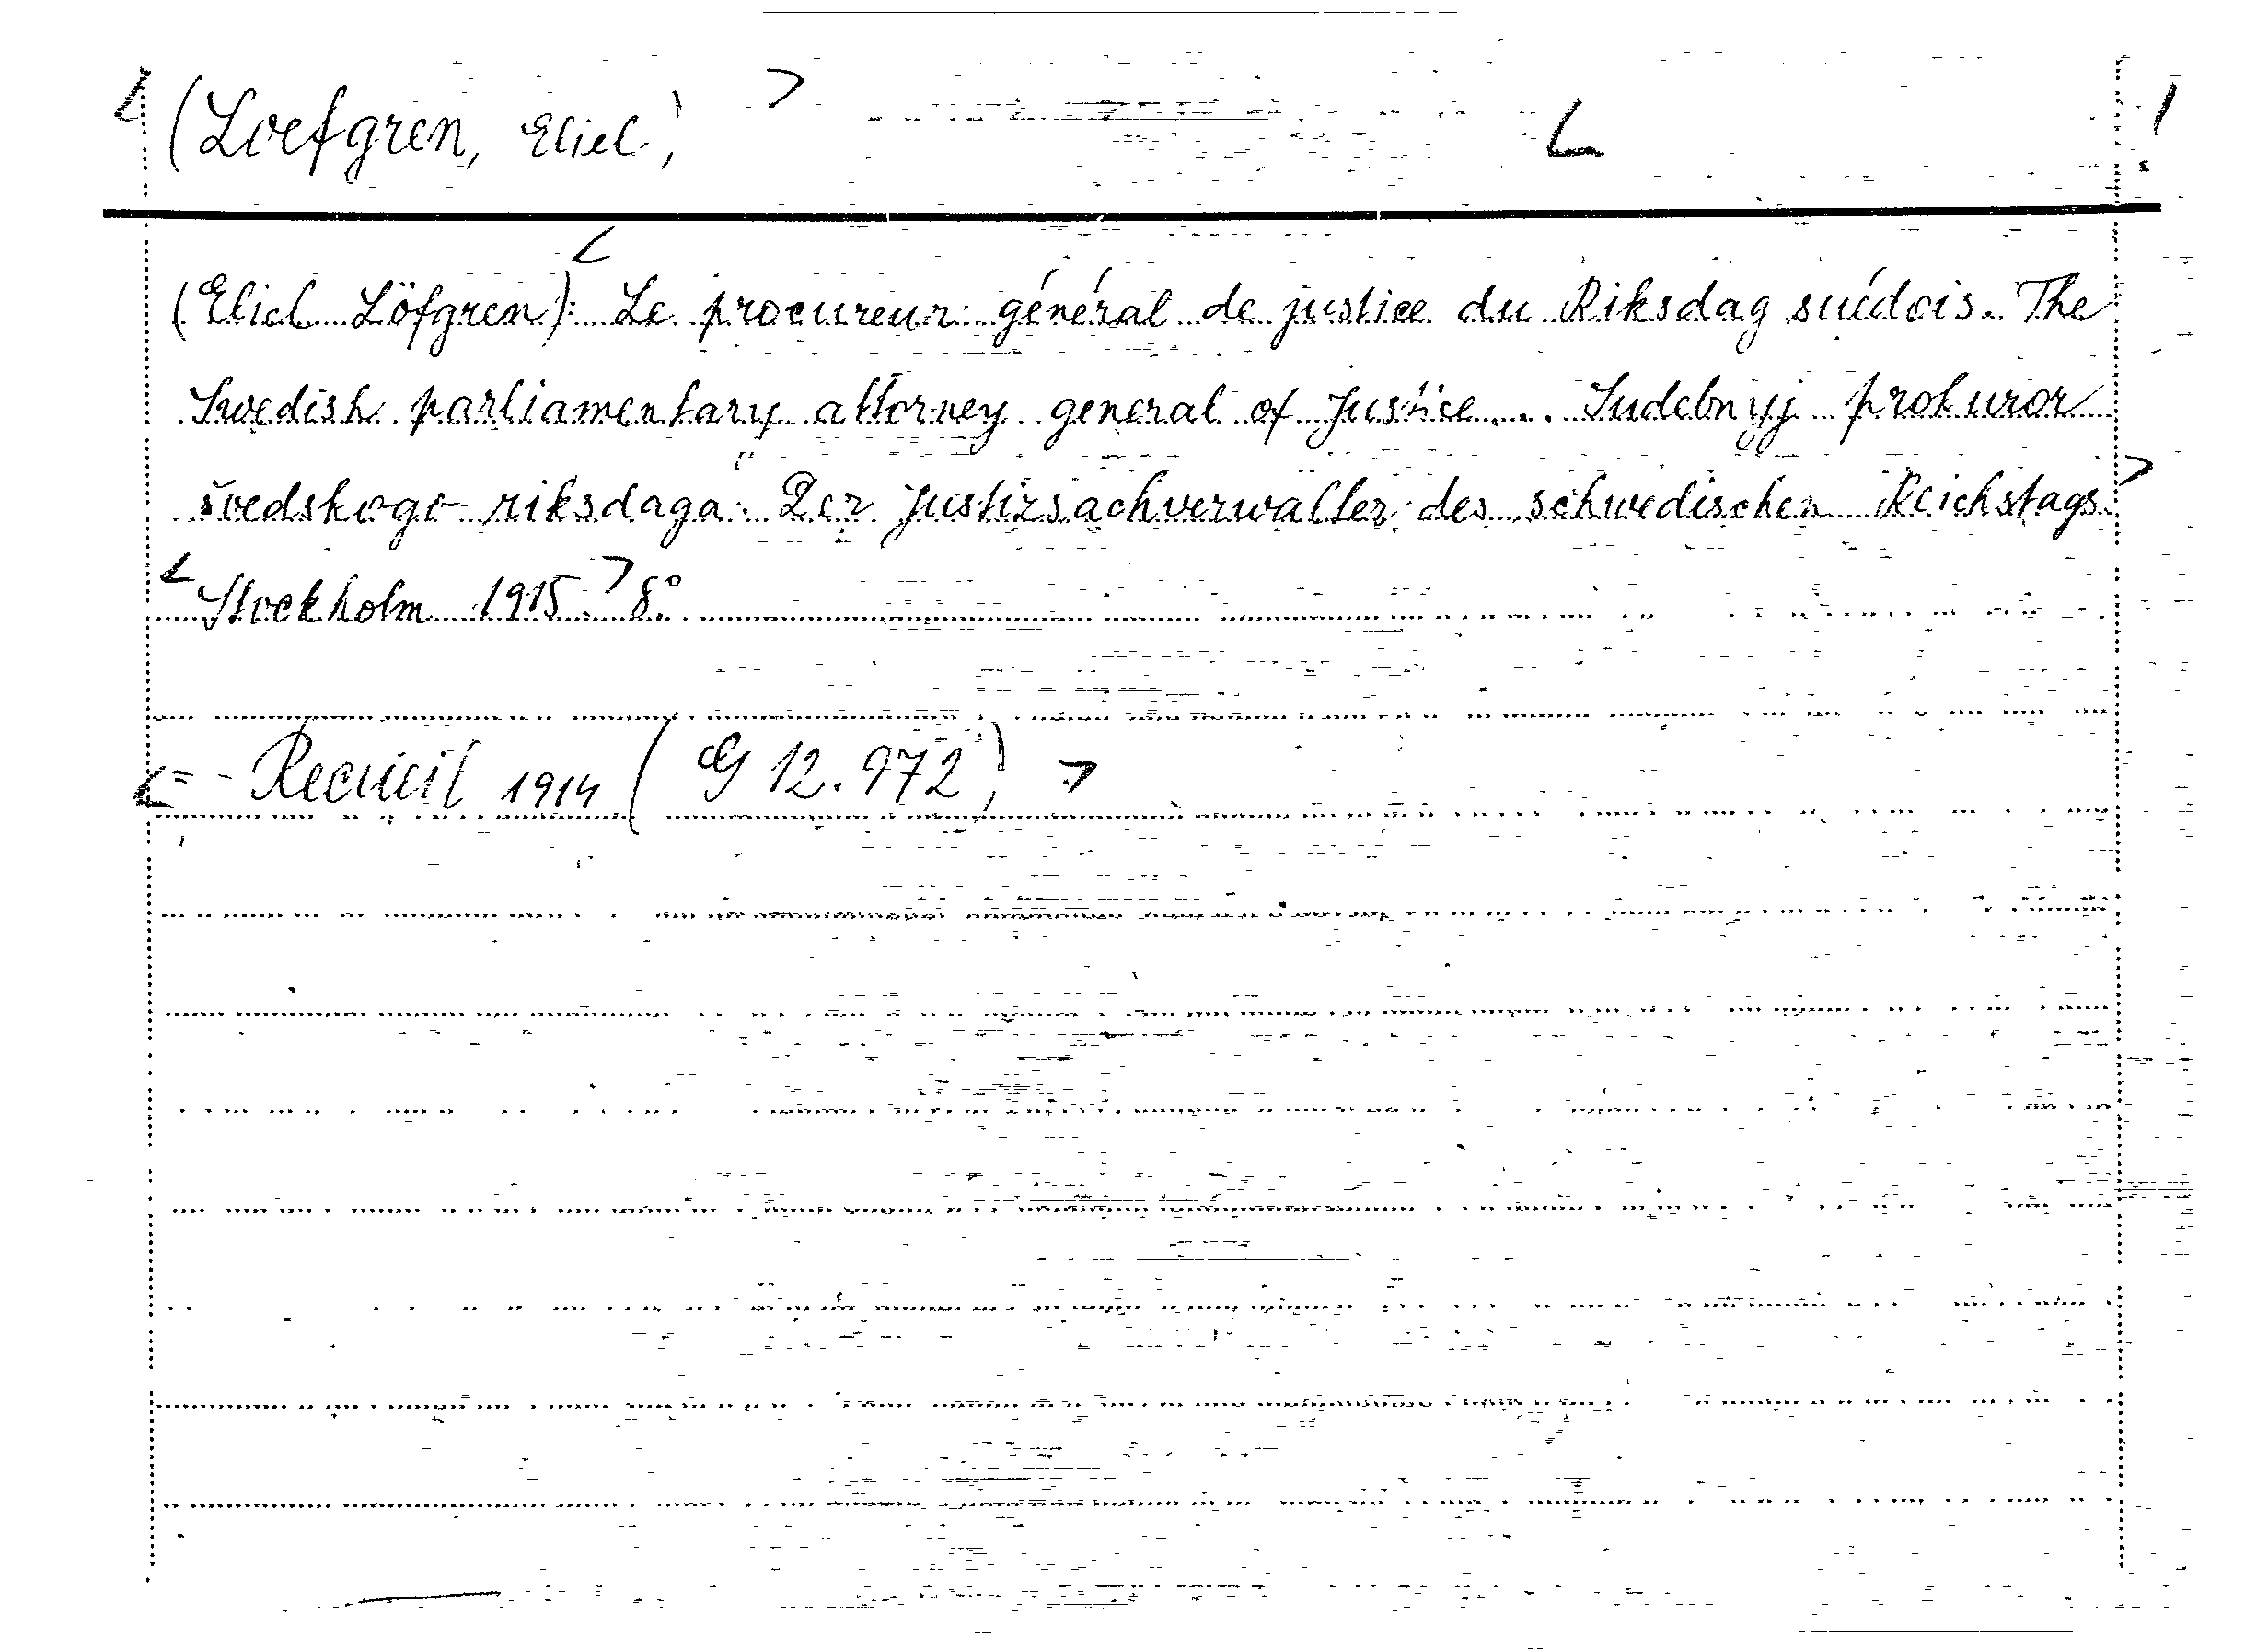 (Loefgren, Eliel,)
(Eliel Löfgren): Le procureur général de justice du Riksdag suédois. The
Swedish parliamentary attorney general of Justice... Sudebnyj prokuror
švedskogo riksdaga. Der Justizsachverwalter des schwedischen Reichstags.
Stockholm 1915. 8°
= - Recueil 1914 (G 12.972)